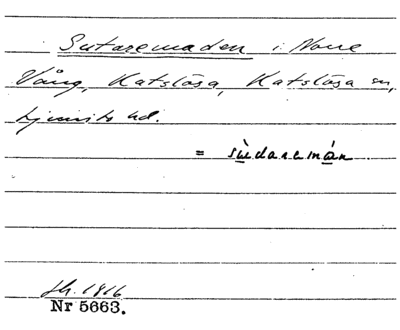 Sutaremaden i Norre
Vång, Katslösa, Katslösa sn,
Ljunits hd.
= sùdaremán
sk. 1816
Nr 5663.